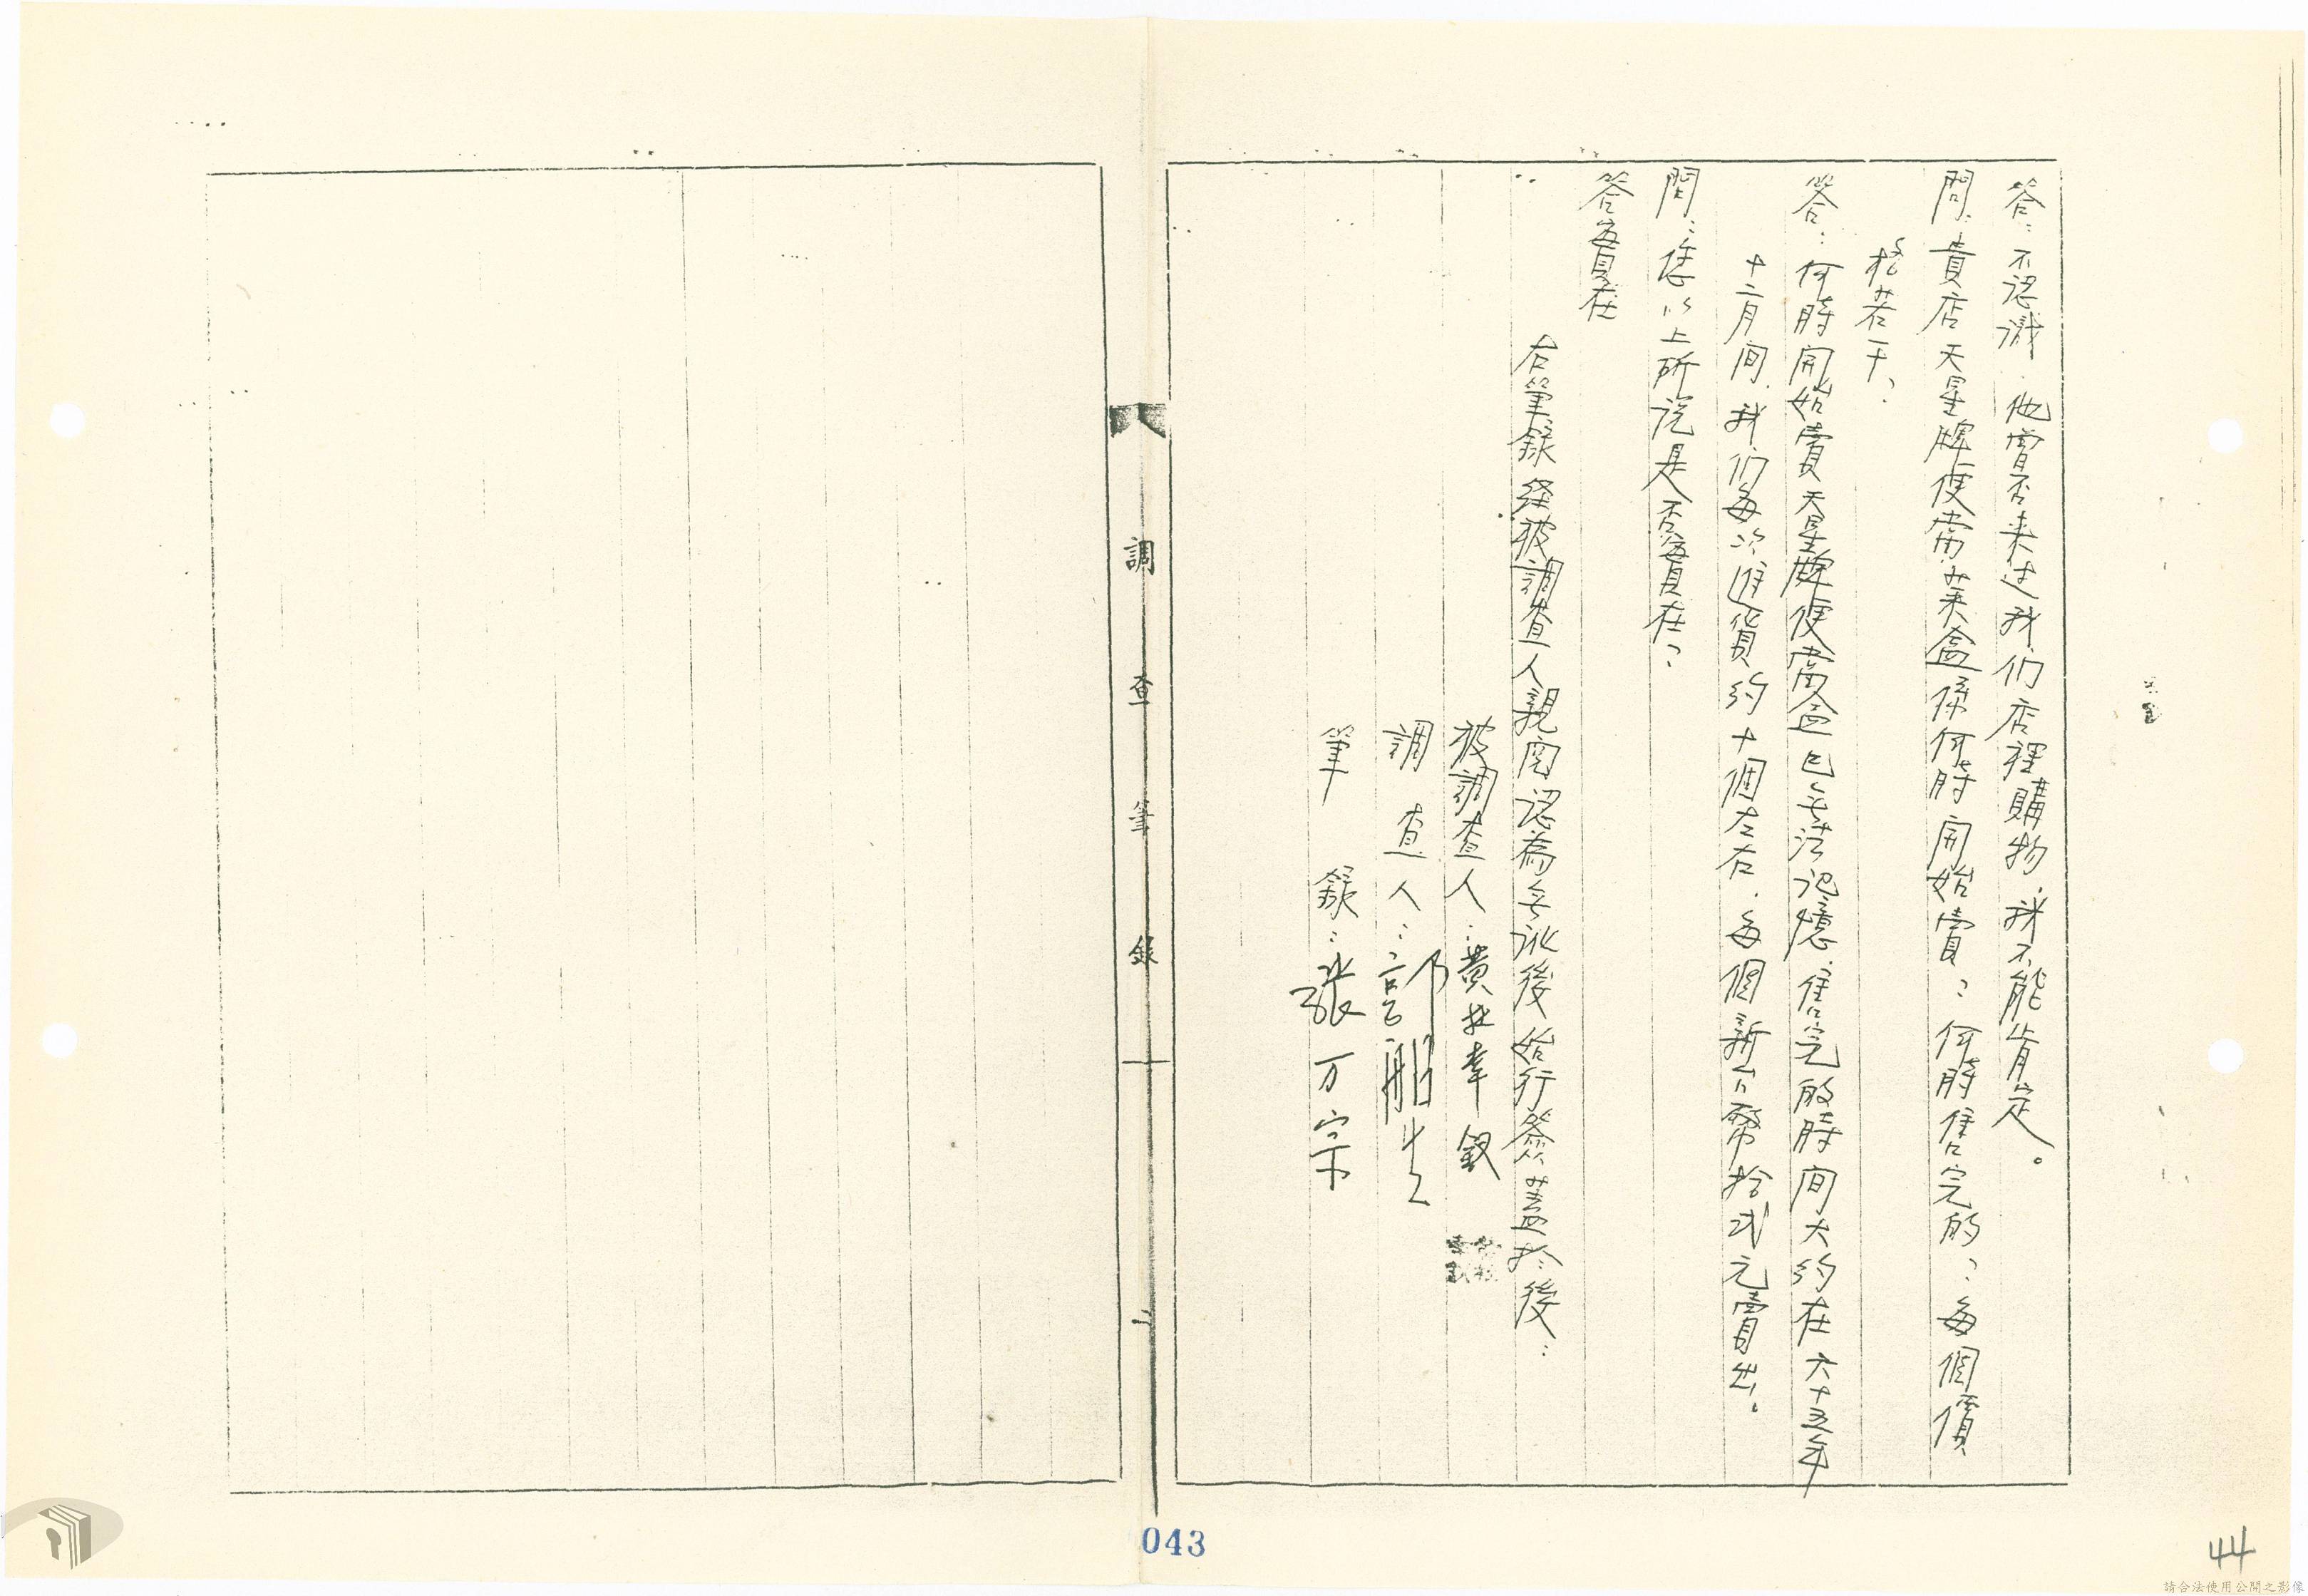 答：不認識，他曾否来过我们店裡購物，我不能肯定。
問：貴店天星牌便當菜盒係何時開始賣？何時售完的？每個價
格若干？
答：何時開始賣天星牌便當盒已無法記憶，售完的時間大約在六十五年
十二月间，我们每次進貨約十個左右，每個新台幣拾弍元賣出。
問：您以上所說是否實在？
答實在
右筆錄経被調查人親閱認為無訛後始行簽蓋於後：
被調查人：黄林幸釵
調查人：
筆錄：張万宗
調查筆錄
二
043
44
請合法使用公開之影像